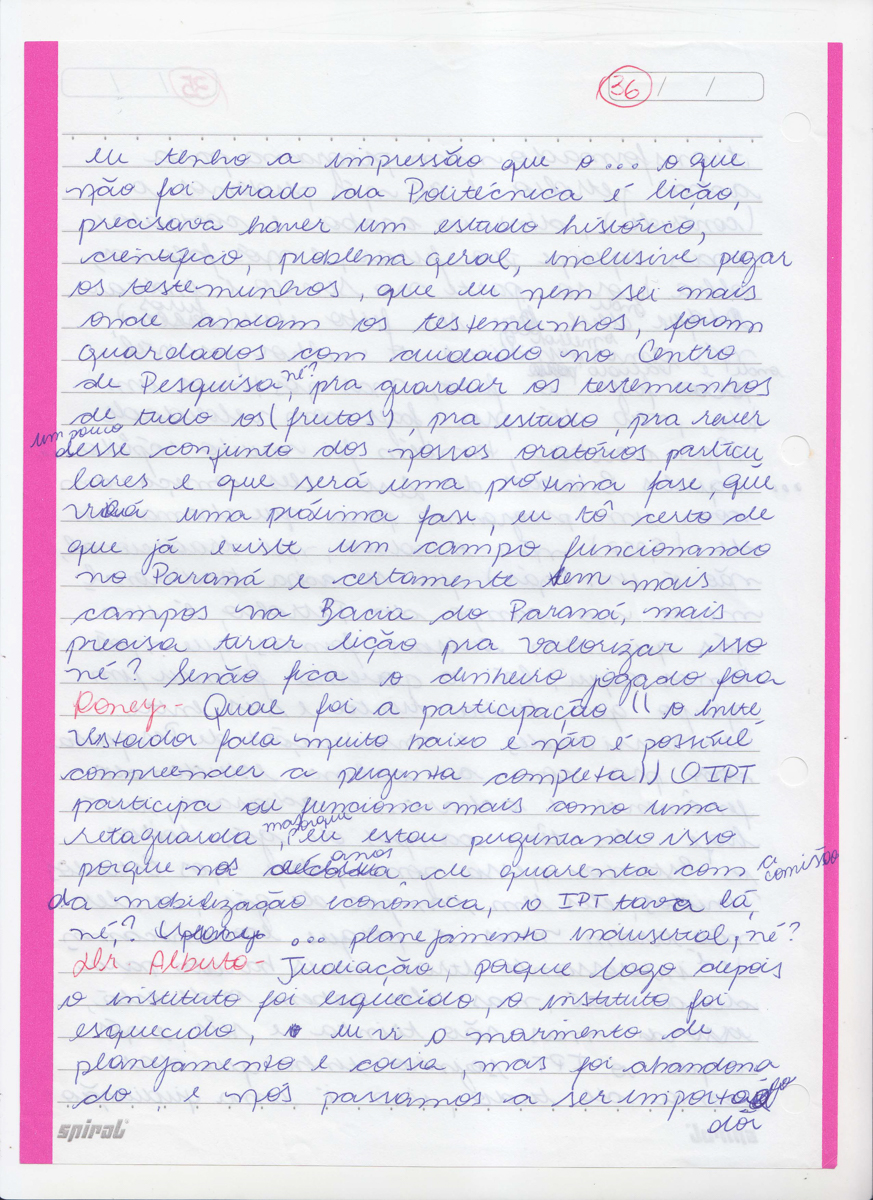 36 / /
eu tenho a impressão que o... o que
não foi tirado da Politécnica é lição,
precisava haver um estudo histórico,
científico, problema geral, inclusive pegar
os testemunhos, que eu nem sei mais
onde andam os testemunhos, foram
guardados com cuidado no Centro
de Pesquisa, né? pra guardar os testemunhos
de tudo os (frutos), pra estudo, pra rever
um pouco desse conjunto dos nossos oratórios particu
lares e que será uma próxima fase, que
virá uma próxima fase, eu tô certo de
que já existe um campo funcionando
no Paraná e certamente tem mais
campos na Bacia do Paraná, mais
precisa tirar lição pra valorizar isso
né? Senão fica o dinheiro jogado fora
Roney - Qual foi a participação (( o entre
vistador fala muito baixo e não é possível
compreender a pergunta completa)) O IPT
participa ou funciona mais como uma
retaguarda, mas porque eu estou perguntando isso
porque nos anos de quarenta com a comissão
da mobilização econômica, o IPT tava lá,
né,? ... planejamento industrial, né?
Dr Alberto - Judiação, porque logo depois
o instituto foi esquecido, o instituto foi
esquecido, e eu vi o movimento de
planejamento e coisa, mas foi abandona
do e nós passamos a ser importa
dor
spiral